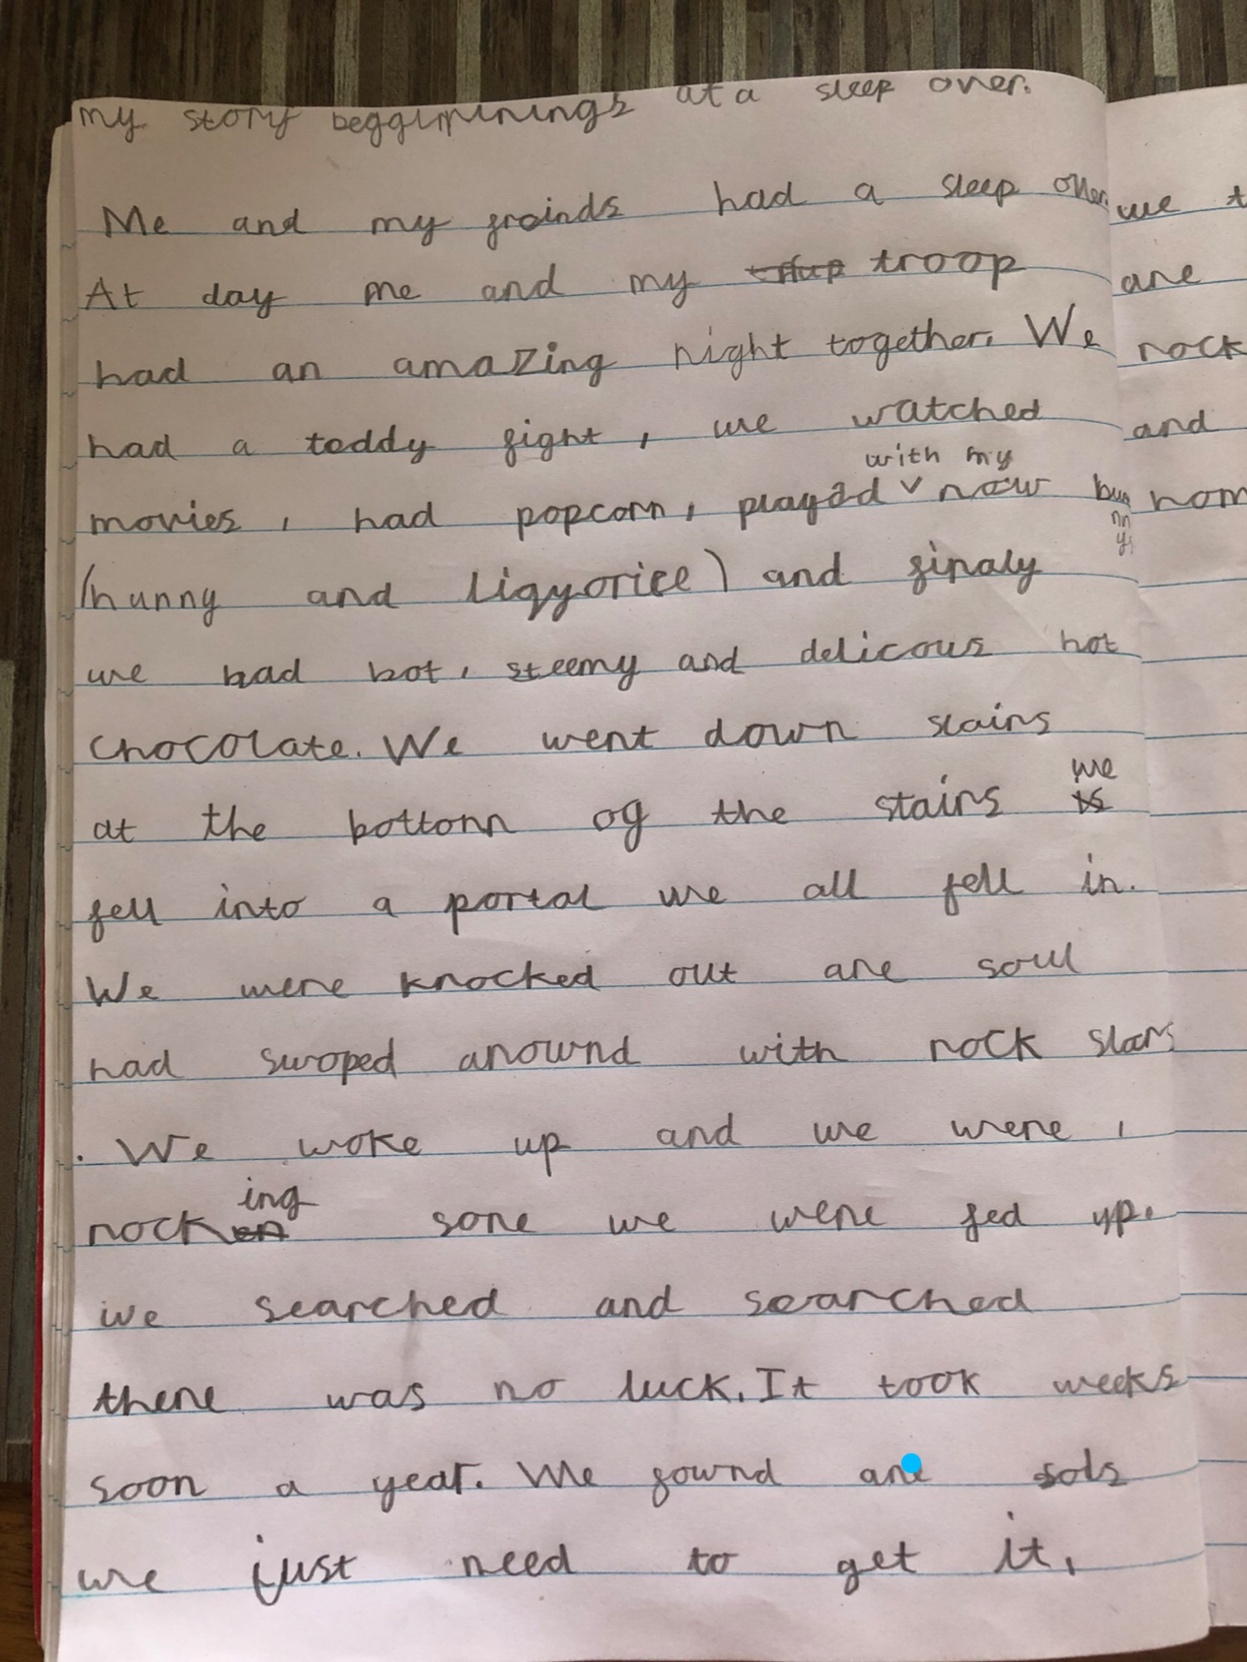 my story begginnings at a sleep over.
Me and my froinds had a sleep over.
At day me and my troop
had an amazing night together. We
had a teddy fight, we watched
with my
movies, had popcorn, played new bunnys
(hunny and liqyorice) and finaly
we had hot, steemy and delicous hot
chocolate. We went down stairs
we
at the bottom of the stairs
fell into a portal we all fell in.
We were knocked out are soul
had swoped arownd with rock stars
. We woke up and we were,
ing
rock sore we were fed up.
we searched and searched
there was no luck. It took weeks
soon a year. We fownd are sols
we just need to get it,
we t
are
rock
and